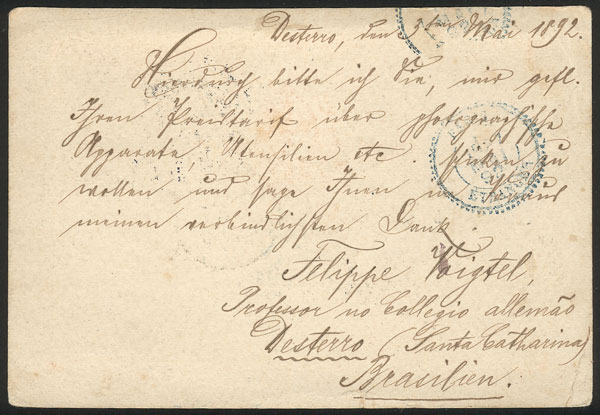 Desterro, den 3ten Mai 1892.
Hierdurch bitte ich Sie, mir gefl.
Ihren Preiltarif über photographische
Apparate, Utensilien etc. schicken zu
wollen und sage Ihnen im Voraus
meinen verbindlichsten Dank.
Felippe Voigtel,
Professor no Collegio allemão
Desterro (Santa Catharina)
Brasilien.